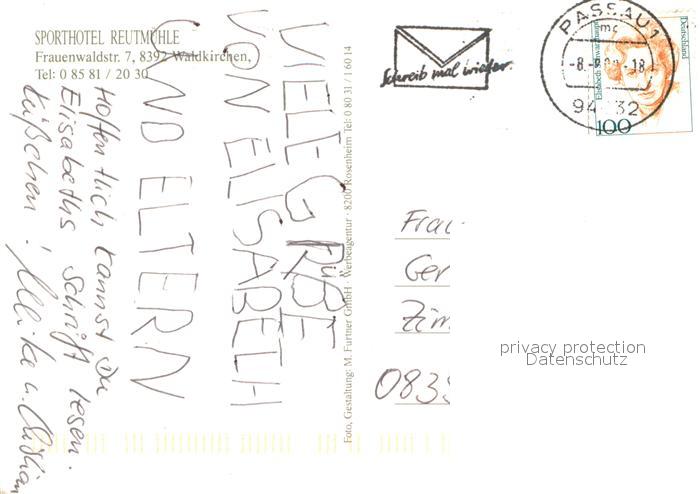 SPORTHOTEL REUTMÜHLE
Frauenwaldstr. 7, 8392 Waldkirchen,
Tel: 0 85 81 / 20 30
VIELE GRÜßE
VON ELISABETH
UND ELTERN
Hoffentlich kannst Du
Elisabeths Schrift lesen.
Küßchen! Ulrike u.
Foto, Gestaltung: M. Furtner GmbH · Werbeagentur · 8200 Rosenheim Tel: 0 80 31 / 1 60 14
Schreib mal wieder.
PASSAU 1
mc
-8.-8.
-18
94 32
Elisabeth Schwarzhaupt
Deutschland
100
Frau
Ger
Zim
083
privacy protection
Datenschutz